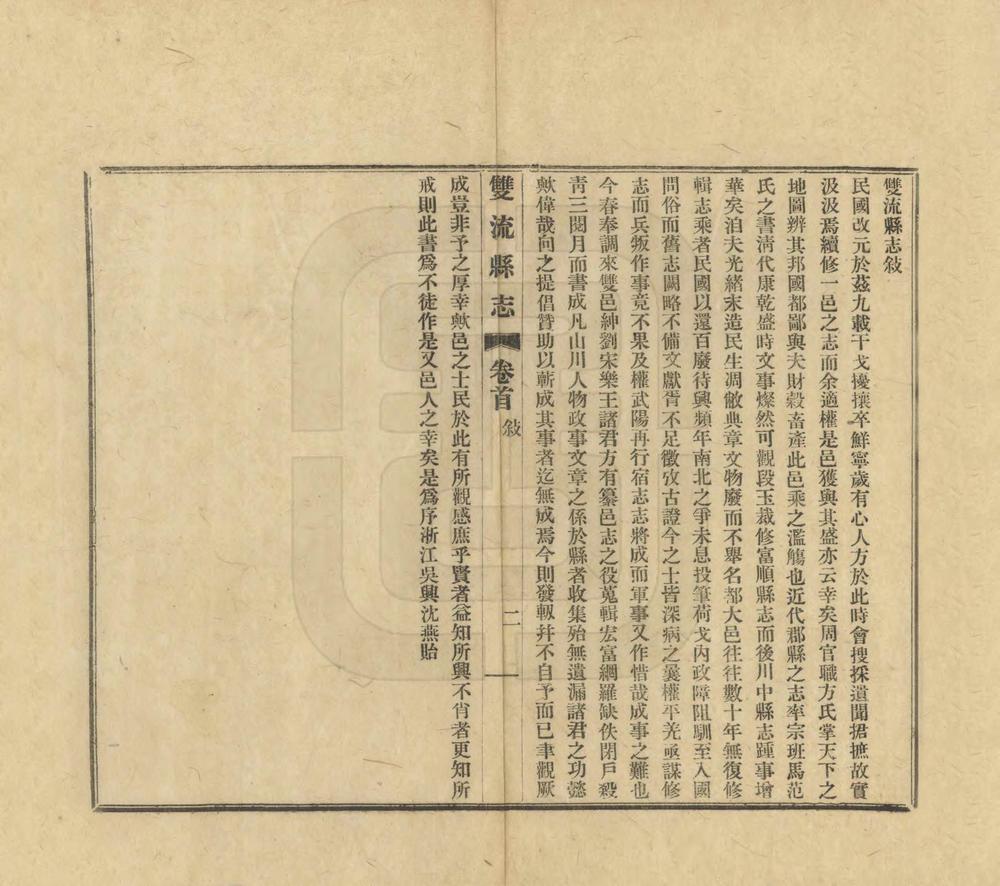 雙流縣志敍
民國改元於茲九載干戈擾攘卒鮮寧歲有心人方於此時會搜採遺聞捃摭故實
汲汲焉續修一邑之志而余適權是邑獲與其盛亦云幸矣周官職方氏掌天下之
地圖辨其邦國都鄙與夫財穀畜產此邑乘之濫觴也近代郡縣之志率宗班馬范
氏之書清代康乾盛時文事燦然可觀段玉裁修富順縣志而後川中縣志踵事增
華矣洎夫光緒末造民生凋敝典章文物廢而不舉名都大邑往往數十年無復修
輯志乘者民國以還百廢待興頻年南北之爭未息投筆荷戈內政障阻馴至入國
問俗而舊志闕略不備文獻胥不足徵攷古證今之士皆深病之曩權平羌亟謀修
志而兵叛作事竟不果及權武陽再行宿志志將成而軍事又作惜哉成事之難也
今春奉調來雙邑紳劉宋樂王諸君方有纂邑志之役蒐輯宏富網羅缺佚閉戶殺
靑三閱月而書成凡山川人物政事文章之係於縣者收集殆無遺漏諸君之功懿
歟偉哉向之提倡贊助以蘄成其事者迄無成焉今則發軔幷不自予而已聿觀厥
雙流縣志 卷首 敍 二
成豈非予之厚幸歟邑之士民於此有所觀感庶乎賢者益知所興不肖者更知所
戒則此書爲不徒作是又邑人之幸矣是爲序浙江吳興沈燕貽